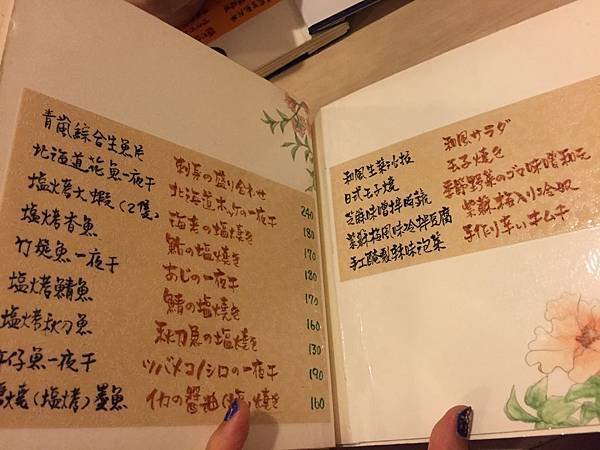 青嵐綜合生魚片
刺身の盛り合わせ
北海道花魚一夜干
北海道ホッケの一夜干 240
塩烤大蝦(2隻)
海老の塩焼き 180
塩烤香魚
鮎の塩焼き 170
竹筴魚一夜干
あじの一夜干 180
塩烤鯖魚
鯖の塩焼き 170
塩烤秋刀魚
秋刀魚の塩焼き 160
仔魚一夜干
ツバメコノシロの一夜干 130
燒(塩烤)墨魚
イカの醤油(塩)焼き 190
160
和風生菜沙拉
和風サラダ
日式玉子燒
玉子焼き
芝麻味噌拌時蔬
季節野菜のゴマ味噌和え
紫蘇梅風味冷拌豆腐
紫蘇梅入り冷奴
手工醃製辣味泡菜
手作り辛いキムチ